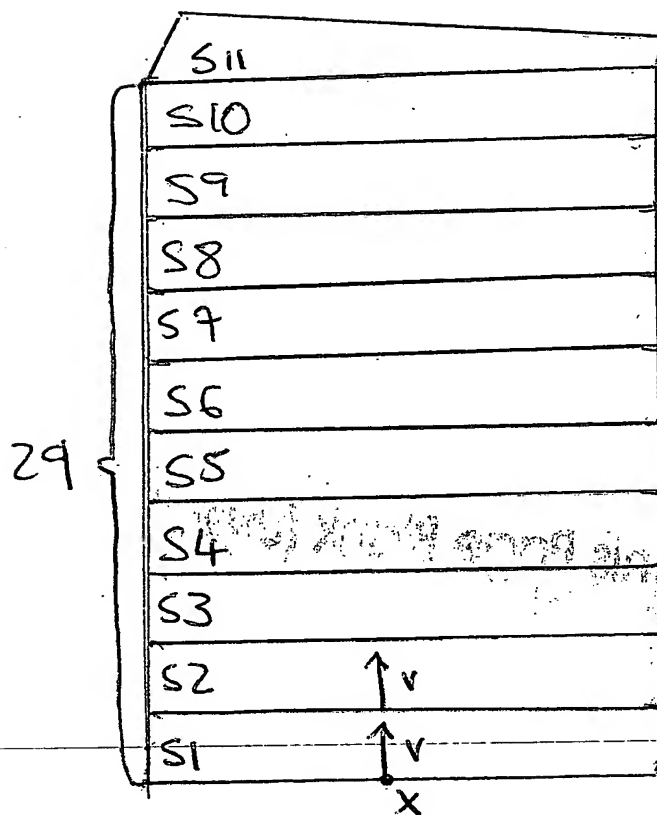 S11
S10
S9
S8
S7
S6
29
S5
S4
S3
S2
V
S1
V
X